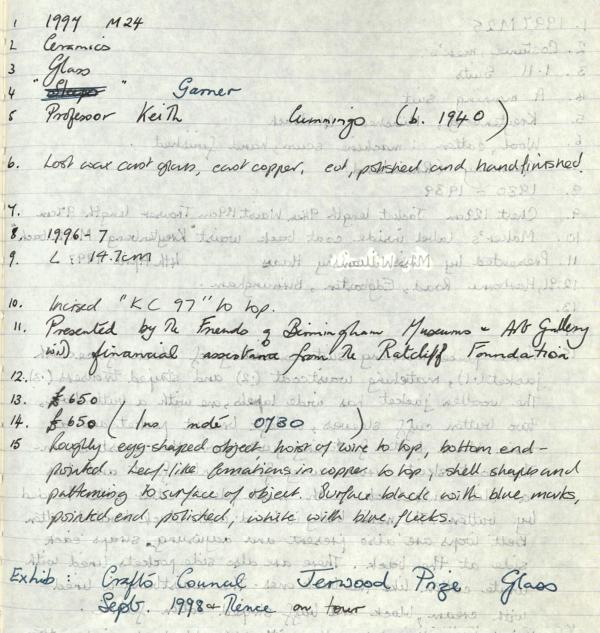 1 1997 M24
2 Ceramics
3 Glass
4 " " Garner
5 Professor Keith Cummings (b. 1940)
6. Lost wax cast glass, cast copper, cut, polished and handfinished.
7.
8 1996-7
9. L 14.7cm
10. Incised "KC 97" to top.
11. Presented by the Friends of Birmingham Museums & Art Gallery
with financial assistance from the Ratcliff Foundation
12.
13. £650
14. £650 (Ins. indét 0730)
15 Roughly egg-shaped object, twist of wire to top, bottom end-
pointed. Leaf-like formations in copper to top, shell shapes and
patterning to surface of object. Surface black with blue marks,
pointed end polished, white with blue flecks.
Exhib: Crafts Council Jerwood Prize Glass
Sept. 1998 & thence on tour